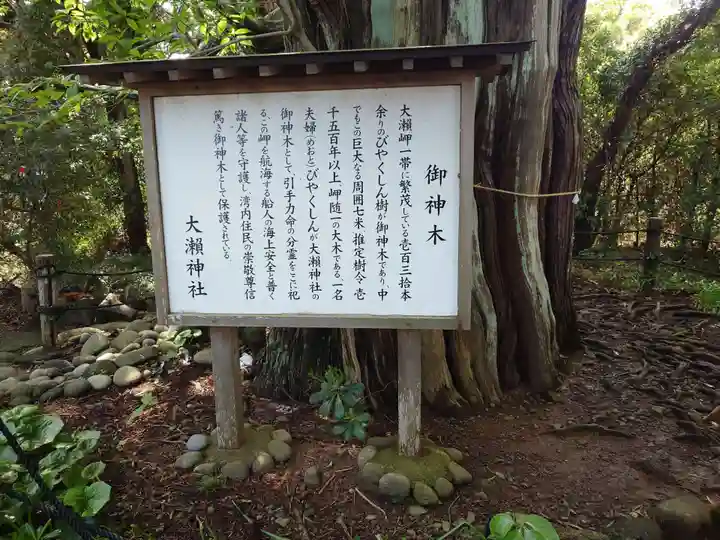 御神木
大瀬岬一帯に繁茂している壱百三拾本
余りのびやくしん樹が御神木であり、中
でもこの巨大なる周囲七米 推定樹令 壱
千五百年以上「岬随一の大木である、一名
夫婦(めおと)びやくしんが大瀬神社の
御神木として、引手力命の分霊をここに祀
る、この岬を航海する船人の海上安全と普く
諸人等を守護し、湾内住民の崇敬尊信
篤き御神木として保護されている。
大瀬神社